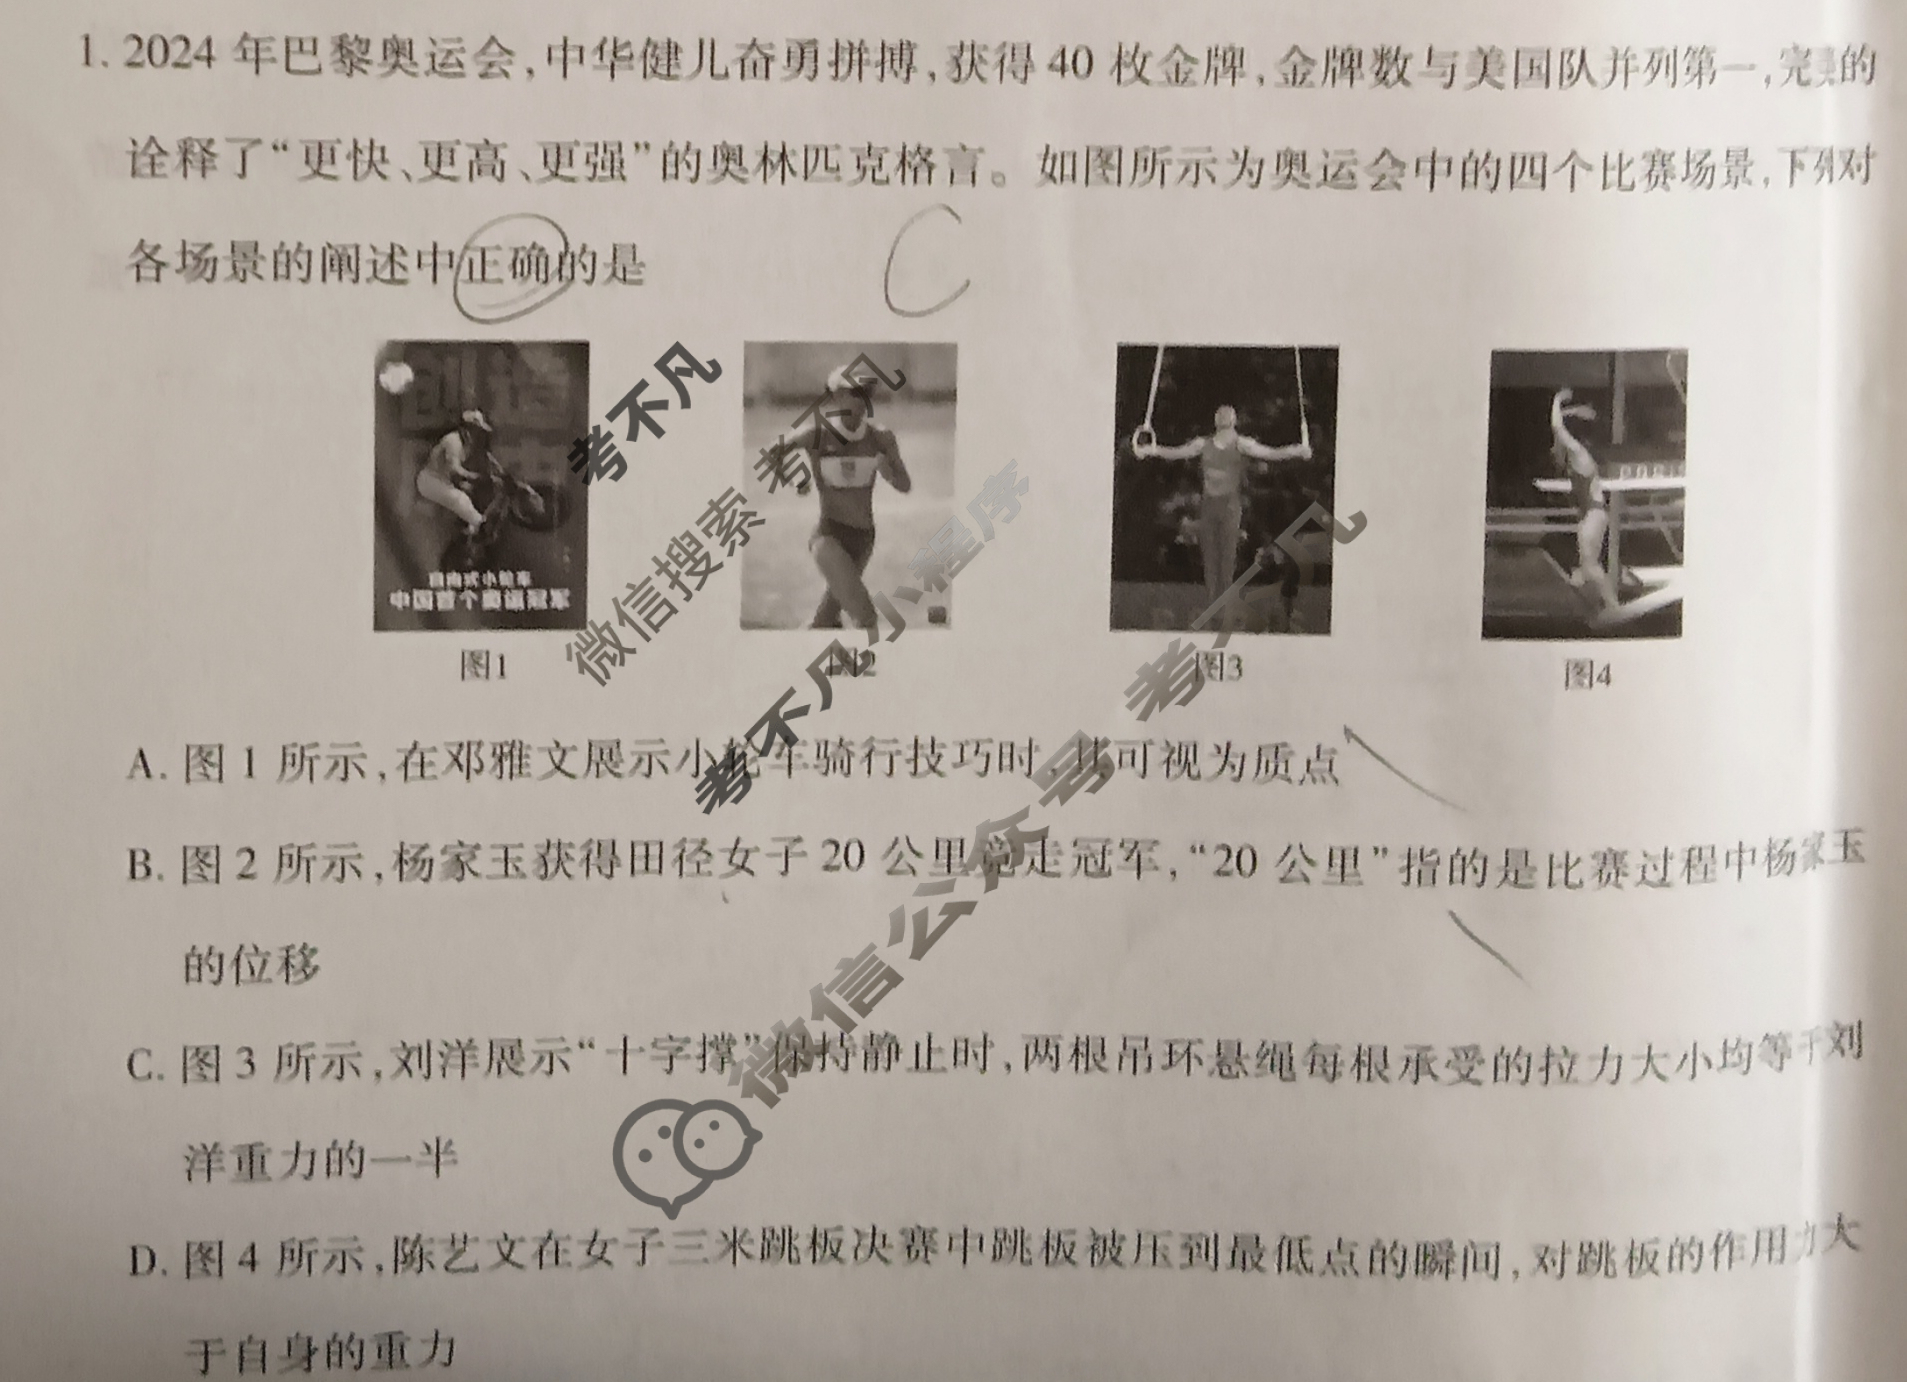 1. 2024 年巴黎奥运会,中华健儿奋勇拼搏,获得 40 枚金牌,金牌数与美国队并列第一,完美的
诠释了“更快、更高、更强”的奥林匹克格言。如图所示为奥运会中的四个比赛场景,下列对
各场景的阐述中正确的是
C
自由式小轮车
中国首个奥运冠军
PARIS
图1
图2
图3
图4
A. 图 1 所示,在邓雅文展示小轮车骑行技巧时,其可视为质点
B. 图 2 所示,杨家玉获得田径女子 20 公里竞走冠军,“20 公里”指的是比赛过程中杨家玉
的位移
C. 图 3 所示,刘洋展示“十字撑”保持静止时,两根吊环悬绳每根承受的拉力大小均等于刘
洋重力的一半
D. 图 4 所示,陈艺文在女子三米跳板决赛中跳板被压到最低点的瞬间,对跳板的作用力大
于自身的重力
考不凡
微信搜索 考不凡
考不凡小程序
微信公众号 考不凡